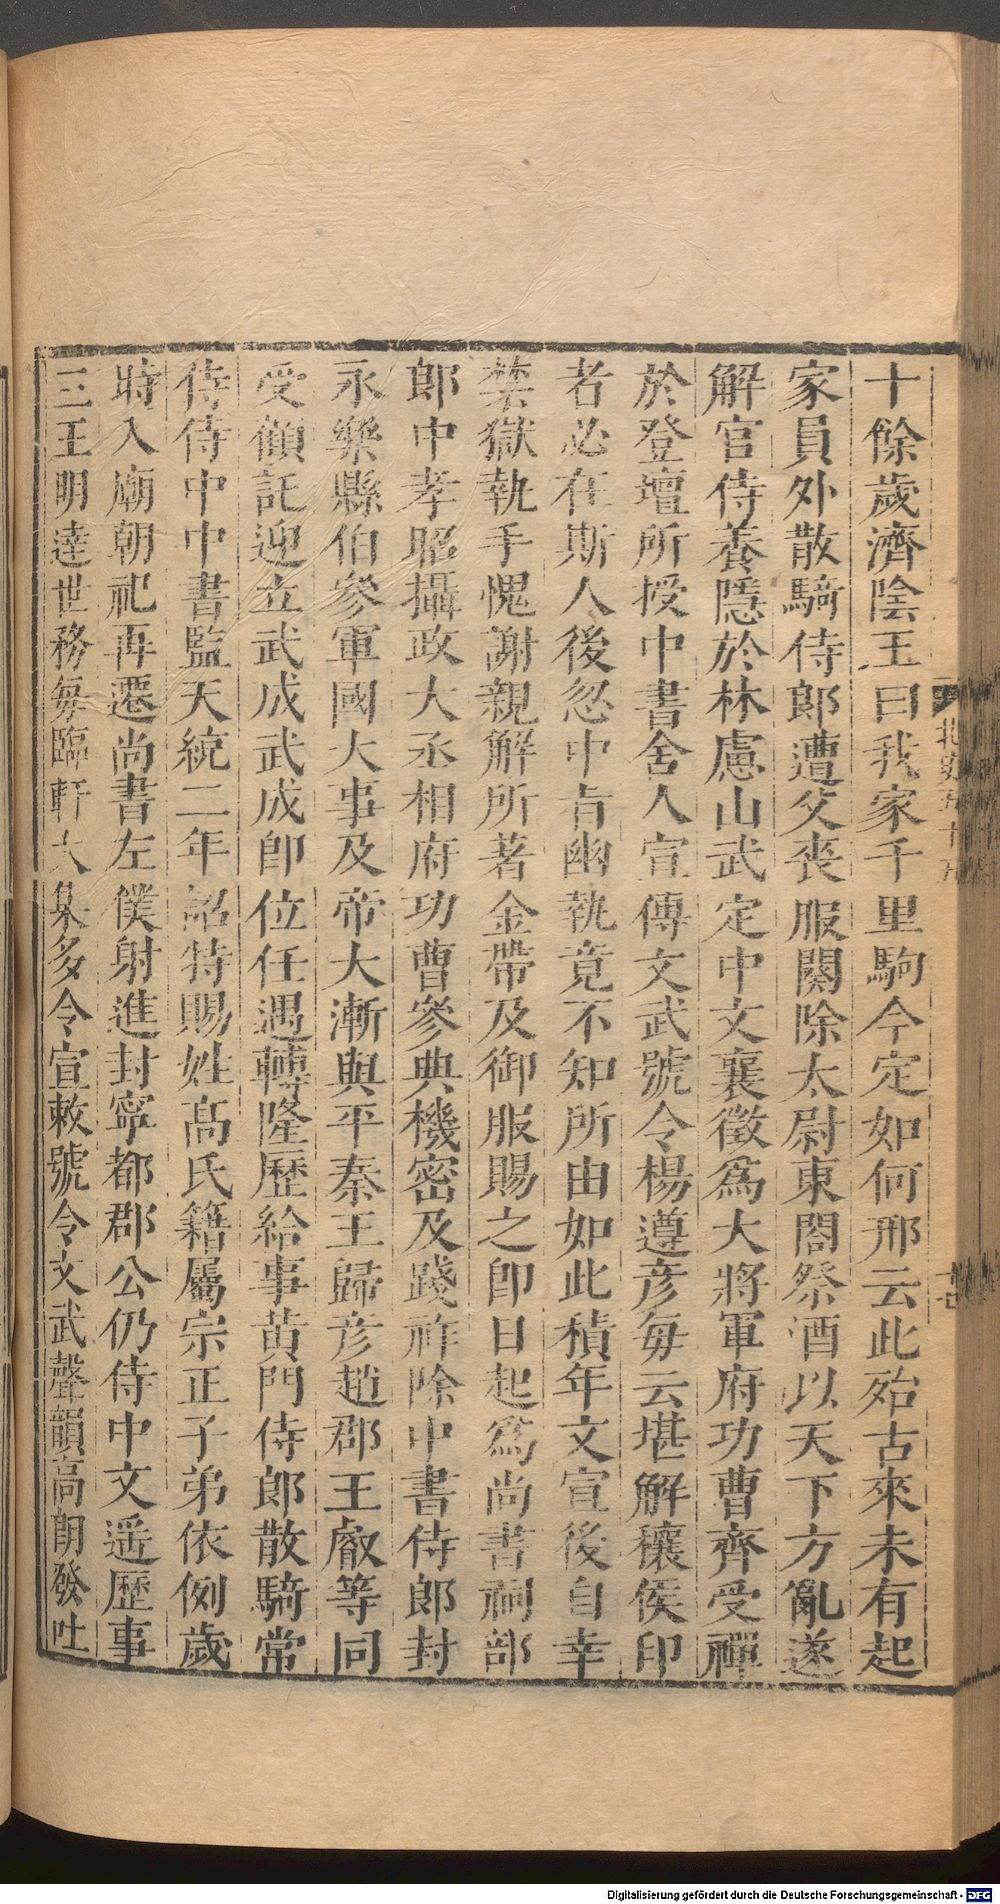 十餘歲濟陰王曰我家千里駒今定如何邢云此殆古來未有起
家員外散騎侍郎遭父喪服闋除太尉東閤祭酒以天下方亂遂
解官侍養隱於林慮山武定中文襄徵爲大將軍府功曹齊受禪
於登壇所授中書舍人宣傳文武號令楊遵彥每云堪解穰侯印
者必在斯人後忽中旨幽執竟不知所由如此積年文宣後自幸
禁獄執手愧謝親解所著金帶及御服賜之卽日起爲尚書祠部
郎中孝昭攝政大丞相府功曹參典機密及踐祚除中書侍郎封
永樂縣伯參軍國大事及帝大漸與平秦王歸彥趙郡王叡等同
受顧託迎立武成武成卽位任遇轉隆歷給事黃門侍郎散騎常
侍侍中中書監天統二年詔特賜姓高氏籍屬宗正子弟依例歲
時入廟朝祀再遷尚書左僕射進封寧都郡公仍侍中文遥歷事
三王明達世務每臨軒大集多令宣敕號令文武聲韻高朗發吐
北史五十五
十七
Digitalisierung gefördert durch die Deutsche Forschungsgemeinschaft - DFG